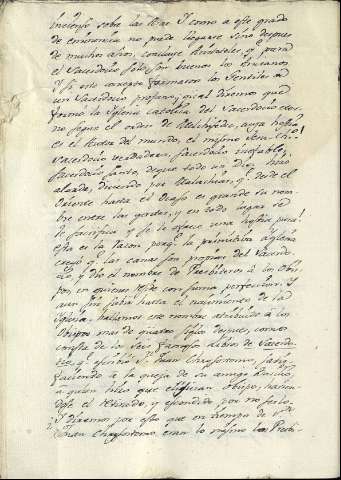 incienso sobre las Aras. I como a este grado
de eminencia no puede llegarse sino despues
de muchos años, concluye Aristoteles, qᵉ para
el Sacerdocio solo son buenos los Ancianos
Y si este concepto formaron los Gentiles de
un Sacerdocio profano, qual diremos que
formó la Iglesia Catolica del Sacerdocio eter-
no segun el orden de Melchisedec, cuya hostia
es el Autor del mundo, el mismo Jesu-Chrᵗᵒ!
Sacerdocio verdadero, Sacerdocio inefable,
Sacerdocio santo, de que todo un Dios
diciendo por Malachias, qᵉ desde el
Oriente hasta el Ocaso es grande su nom-
bre entre las gentes, y en todo lugar se
le sacrifica y se le ofrece una hostia pura!
esta es la razon porqᵉ la primitiva Iglesia
creyó qᵉ las canas son propias del Sacerdo-
cio, y dio el nombre de Presbiteros a los Obis-
pos en quienes esta con suma perfeccion. Y
aun sin salir hasta el nacimiento de la
Iglesia, hallamos este nombre atribuido a los
Obispos mas de quatro siglos despues, como
consta de los seis famosos libros de Sacerdo-
tio, qᵉ escribio S. Juan Chrysostomo, satis-
faciendo a la queja de su amigo Basilio,
a quien hizo que eligieran Obispo, habien-
dose el retirado, y escondido por no serlo.
Y diremos por esto que en tiempo de Sⁿ.
Juan Chrysostomo, eran lo mismo los Presbi-